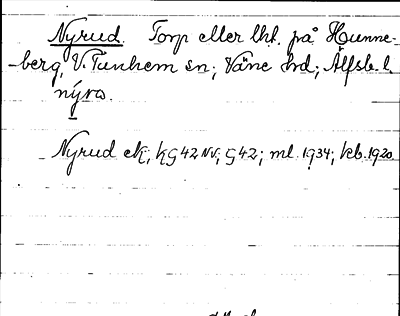 Nyrud. Torp eller lht. på Hunne-
-berg, V. Tunhem sn; Väne hd; Älfsb. l.
nýra.
Nyrud ek, kG42NV; G42; ml. 1934; kb. 1920